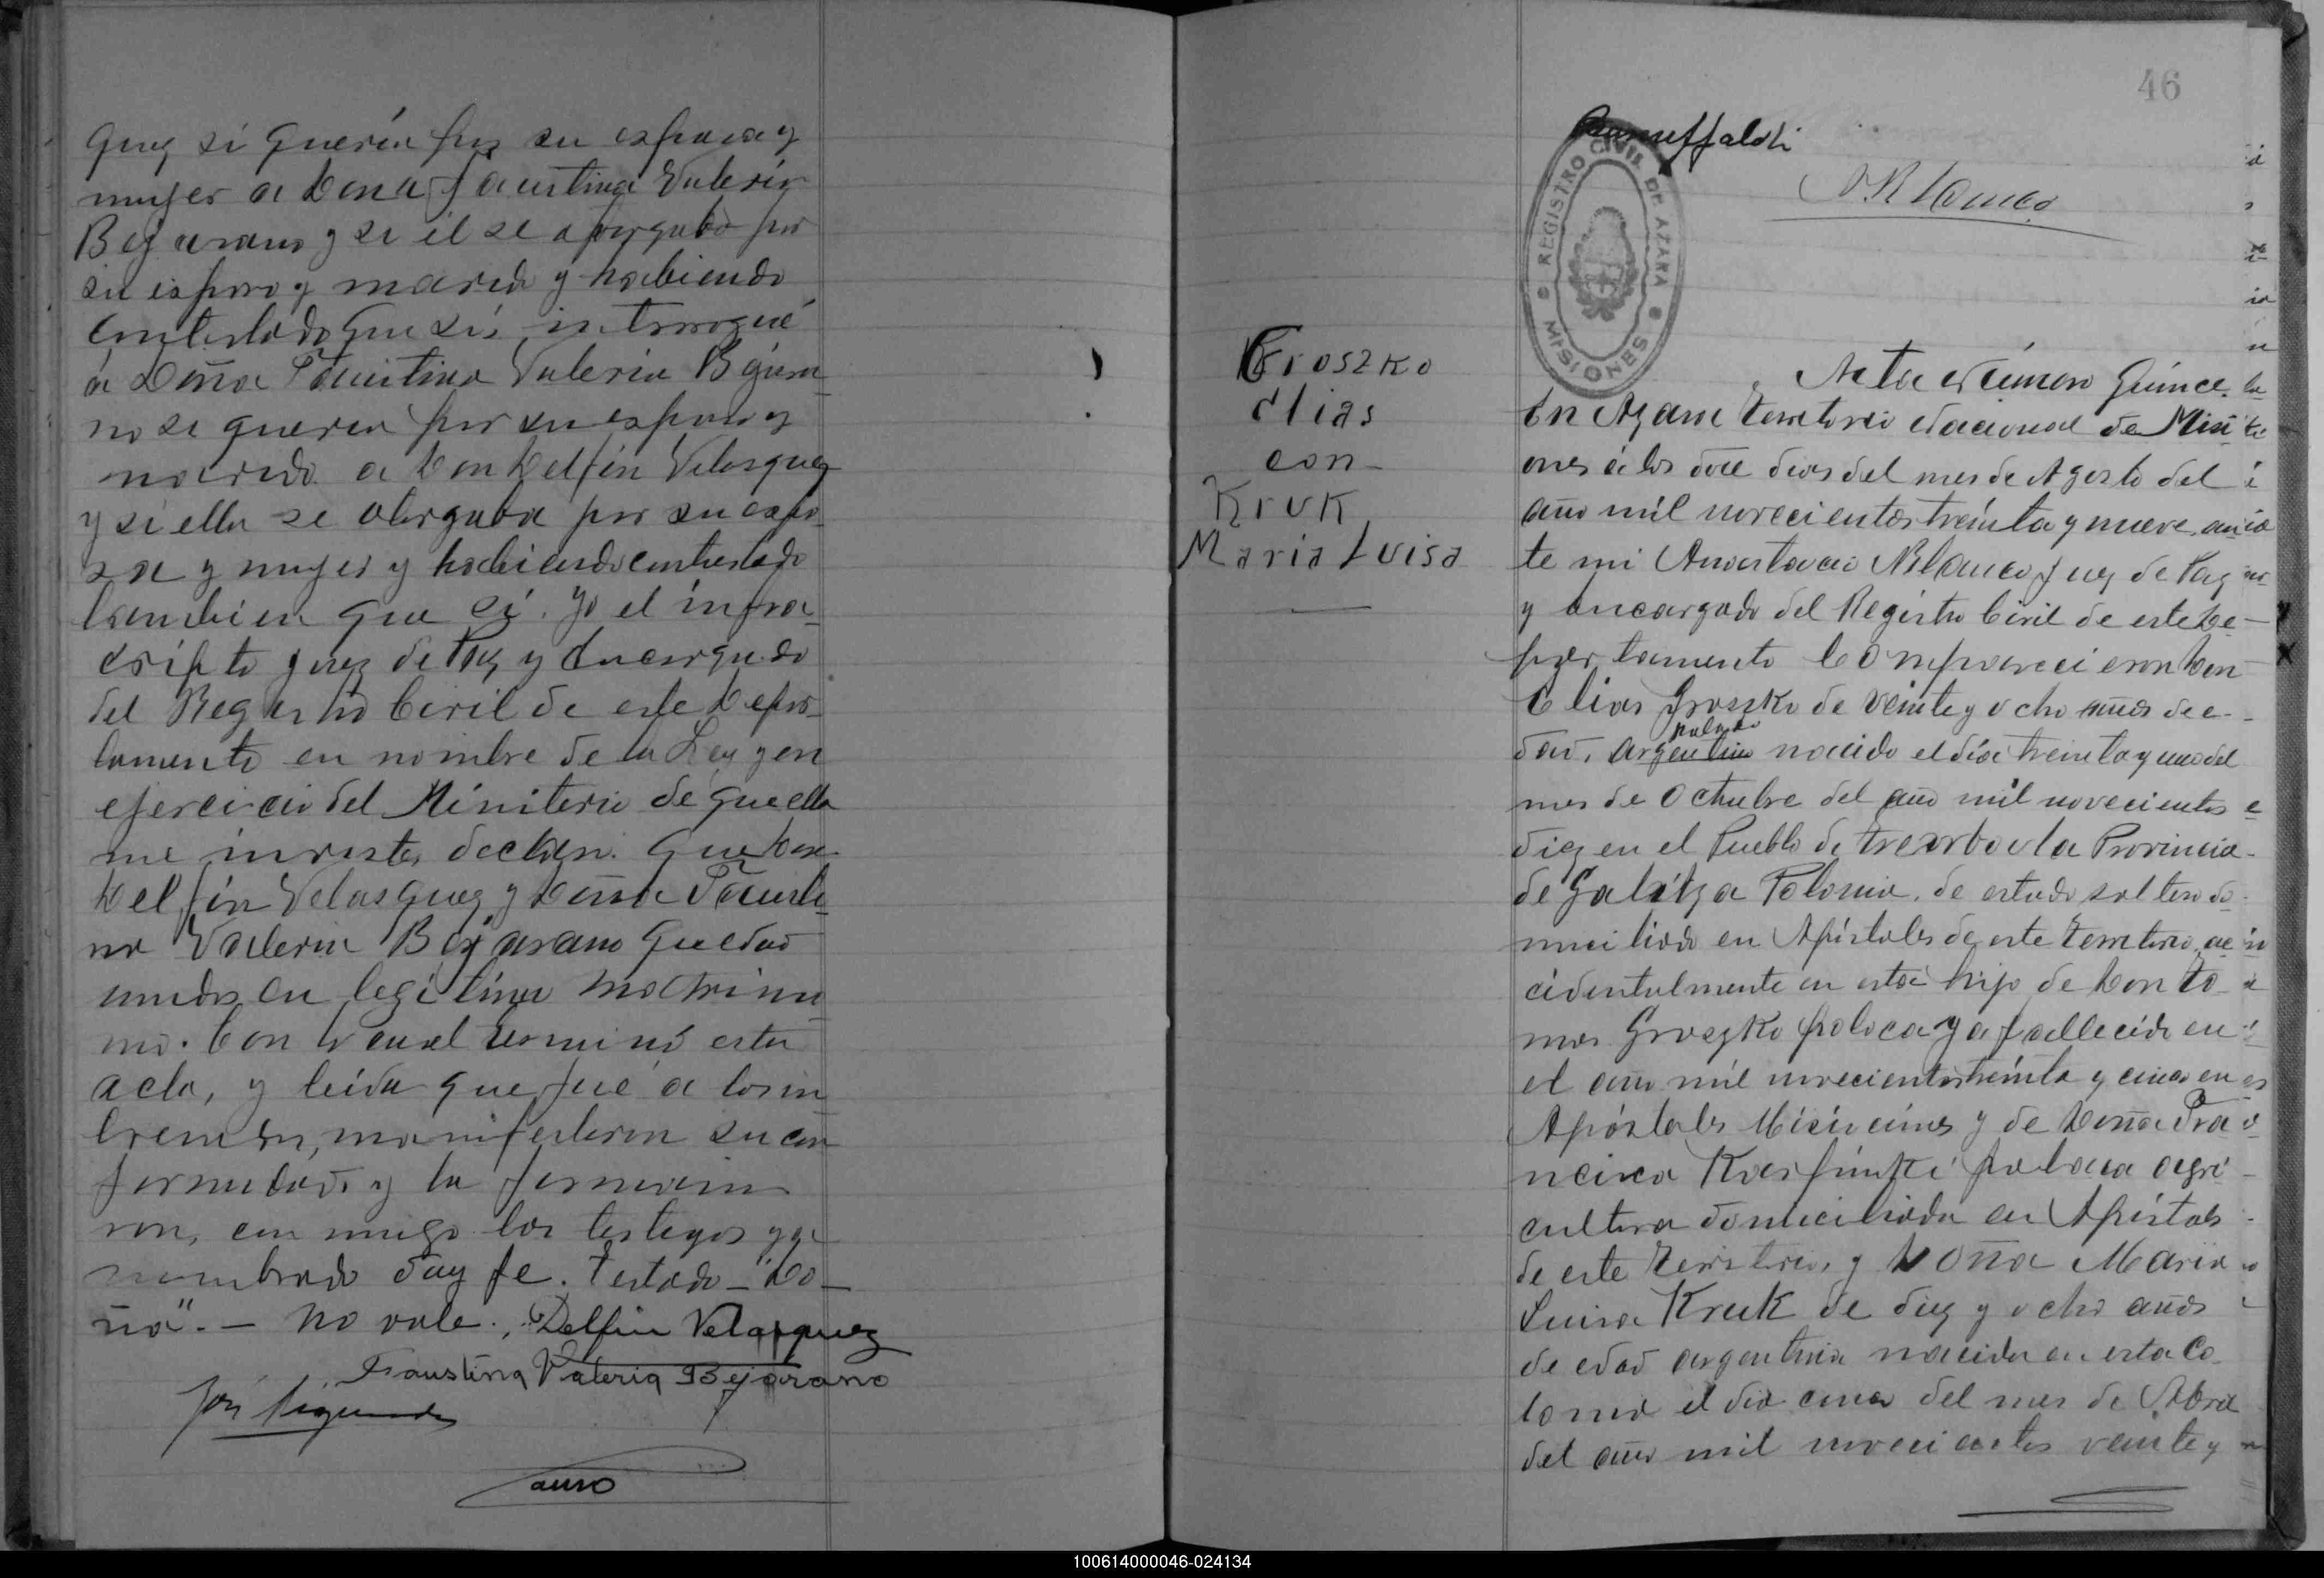 quez si quería por su esposa y
mujer a Dona Faustina Valeria
Bejarano y si él se otorgaba por
su esposo y marido y habiendo
contestado que sí, interrogué
á Doña Faustina Valeria Bejara-
no si queria por su esposo y
marido a Don Delfin Velasquez
y si ella se otorgaba por su espo-
sa y mujer y habiendo contestado
tambien que sí. Yo el infra-
scripto Juez de Paz y Encargado
del Registro Civil de este Depar-
tamento en nombre de la Ley y en
ejercicio del Miniterio de que ella
me inviste, declaro. Que Don
Delfín Velasquez y Doña Fausti-
na Valeria Bejarano quedan
unidos en legítimo matrimo-
nio. Con lo cual terminó esta
acta, y leída que fué a los in-
teresados, manifestaron su con
formidad y la firmaron
con migo los testigos ya
nombrado doy fe. Testado - "Do-
ña". - No vale.
Delfin Velasquez
Faustina Valeria Bejarano
46
REGISTRO CIVIL DE AZARA
MISIONES
Groszko
Elias
con
Kruk
Maria Luisa
Acta Número Quince.
En Azara Territorio Nacional de Misi
ones á los doce dias del mes de Agosto del
año mil novecientos treinta y nueve, an
te mi Anastacio Juez de Paz
y Encargado del Registro Civil de este De-
partamento Comparecieron Don
Elias Groszko de veinte y ocho años de e-
polaco
dad, argentino nacido el día treinta y uno del
mes de Octubre del año mil novecientos
diez en el Pueblo de Provincia
de Galitza Polonia, de estado soltero do-
miciliado en Apóstoles de este Territorio, ac
cidentalmente en esta hijo de Don To-
mas Groszko polaca ya fallecido en
el año mil novecientos treinta y cinco en
Apóstoles Misiones y de Doña Fra
ncisca polaca agri-
cultora domiciliada en Apóstoles
de este Territorio, y Doña Maria
Luisa Kruk de diez y ocho años
de edad argentina nacida en esta Co-
lonia el dia cinco del mes de Abril
del año mil novecientos veinte y
100614000046-024134